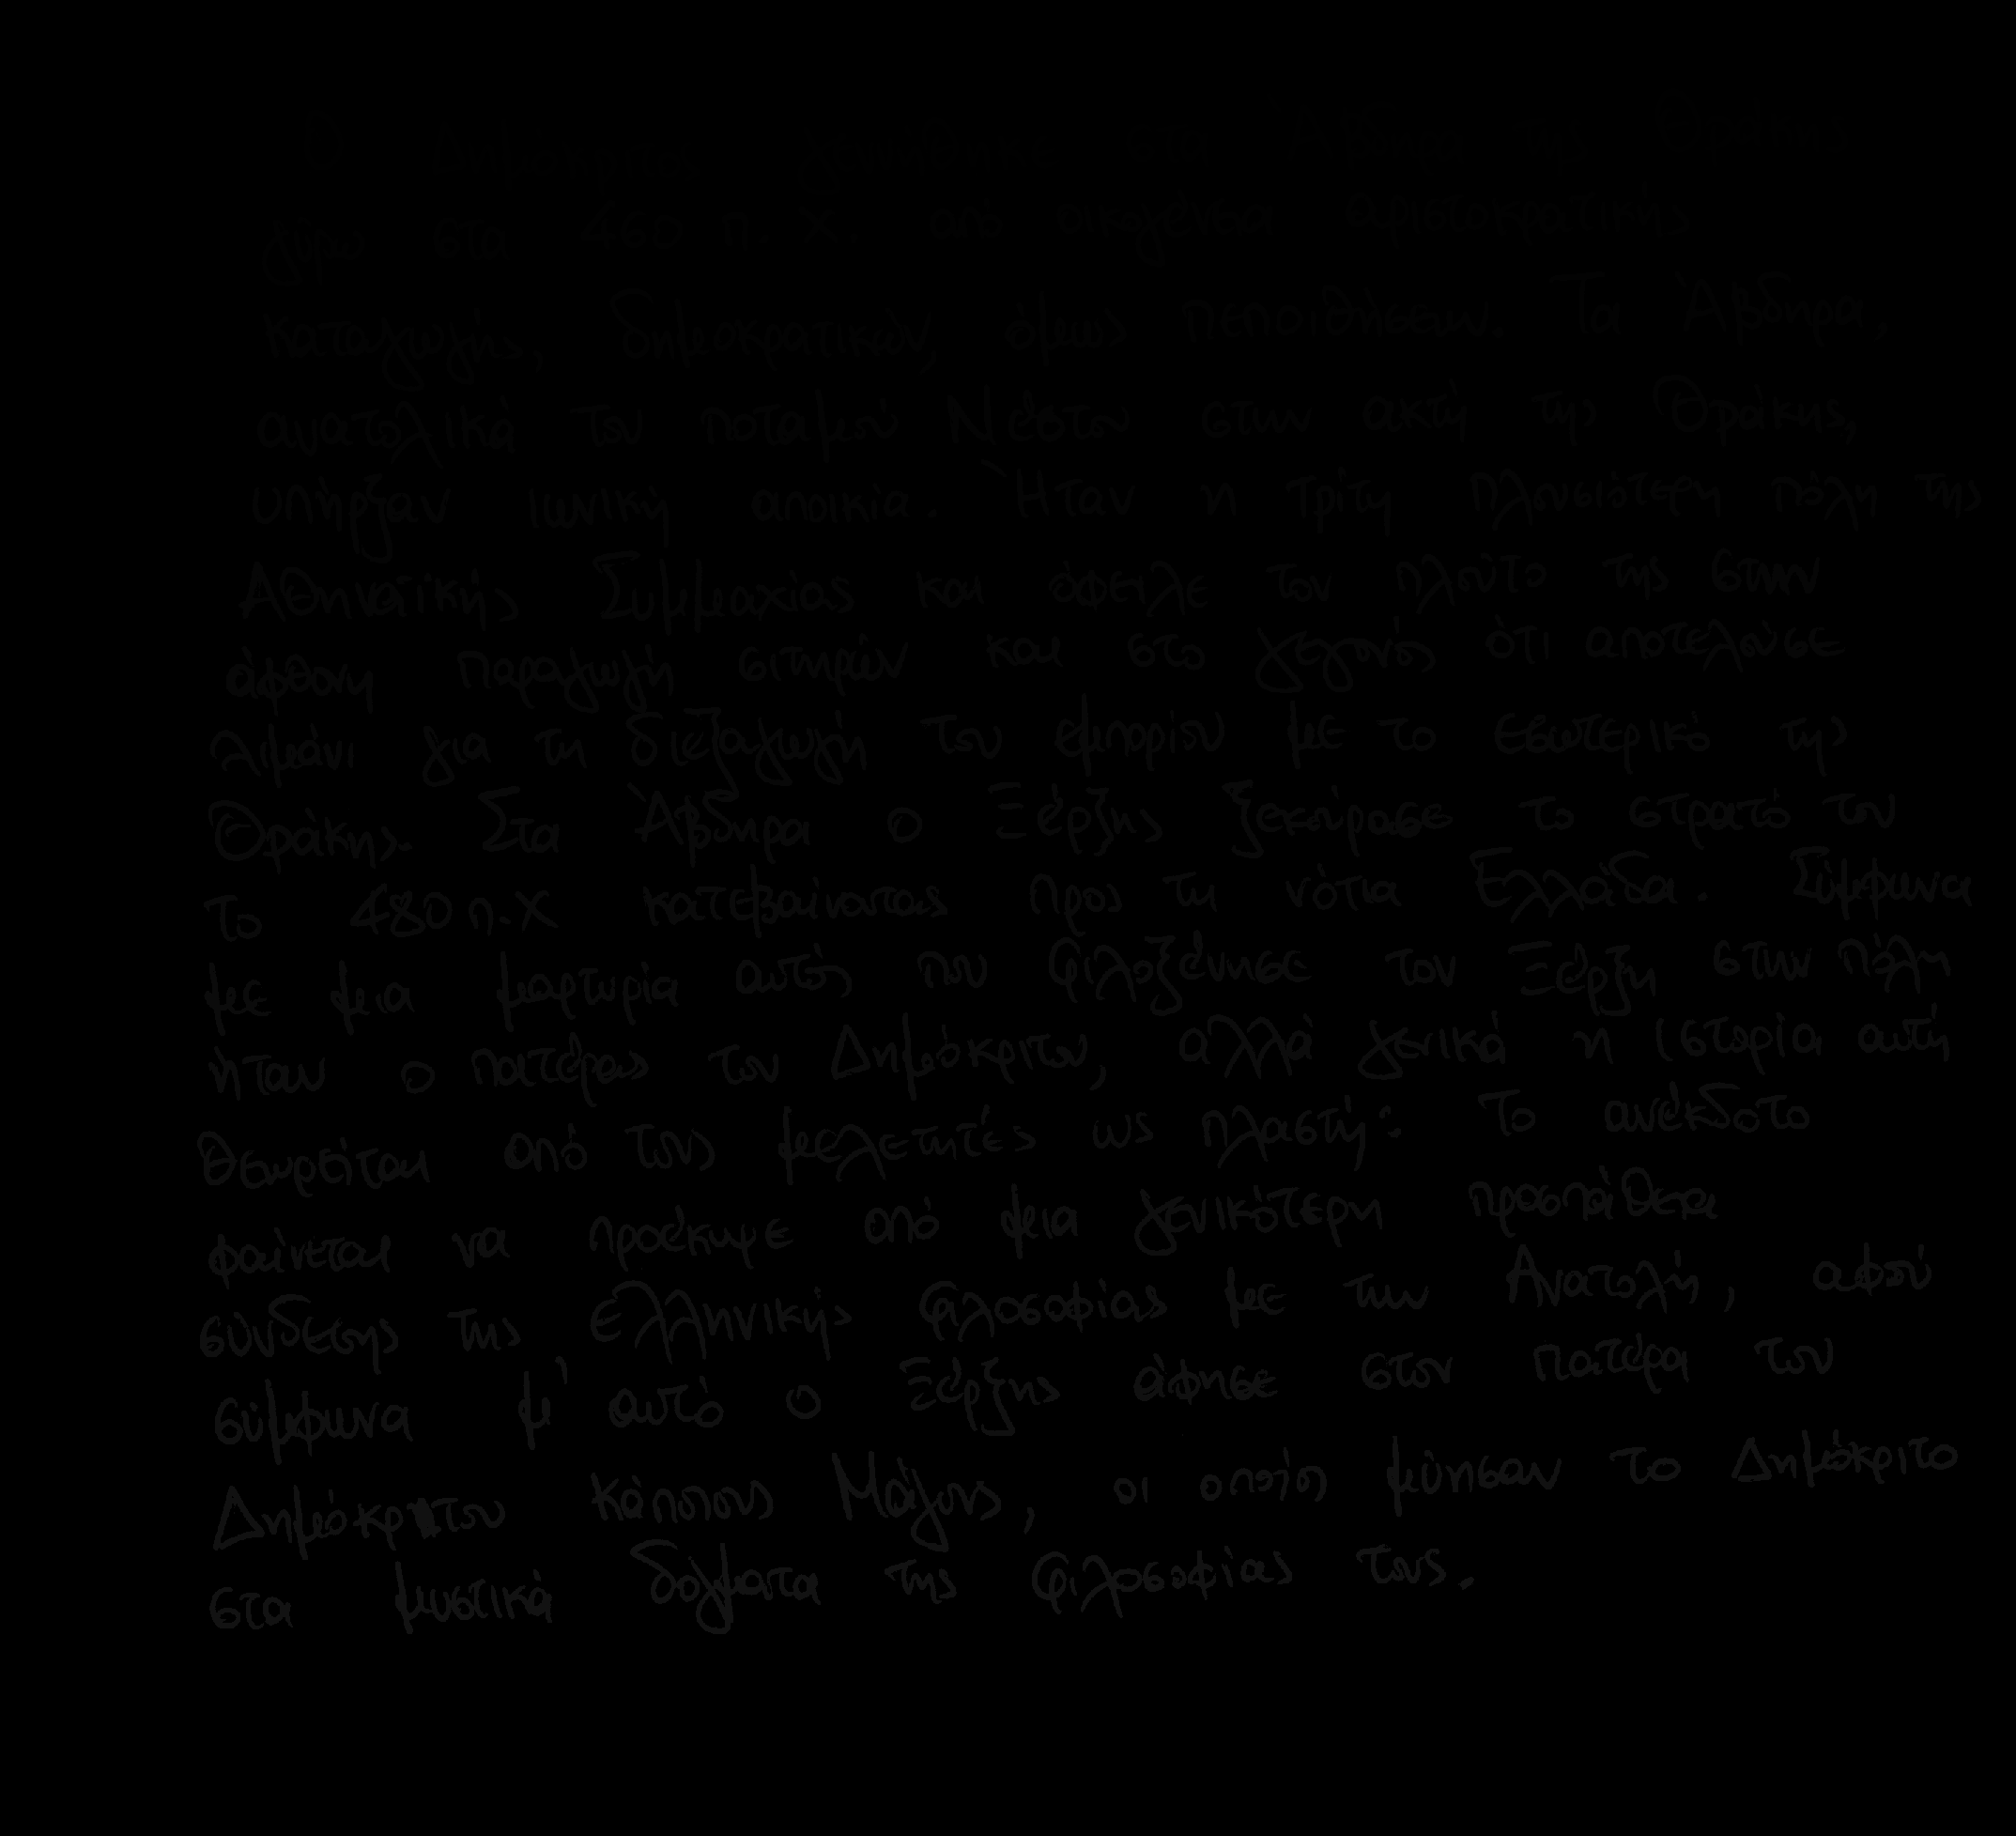 Ο Δημόκριτος γεννήθηκε στα Άβδηρα της Θράκης
γύρω στα 460 π.Χ. από οικογένεια αριστοκρατικής
καταγωγής, δημοκρατικών, όμως πεποιθήσεων. Τα Άβδηρα,
ανατολικά του ποταμού Νέστου στην ακτή της Θράκης,
υπήρξαν ιωνική αποικία. Ήταν η τρίτη πλουσιότερη πόλη της
Αθηναϊκής Συμμαχίας και όφειλε τον πλούτο της στην
άφθονη παραγωγή σιτηρών και στο γεγονός ότι αποτελούσε
λιμάνι για τη διεξαγωγή του εμπορίου με το εσωτερικό της
Θράκης. Στα Άβδηρα ο Ξέρξης ξεκούρασε το στρατό του
το 480 π.Χ κατεβαίνοντας προς τη νότια Ελλάδα. Σύμφωνα
με μια μαρτυρία αυτός που φιλοξένησε τον Ξέρξη στην πόλη
ήταν ο πατέρας του Δημόκριτου, αλλά γενικά η ιστορία αυτή
θεωρείται από τους μελετητές ως πλαστή: το ανέκδοτο
φαίνεται να προέκυψε από μια γενικότερη προσπάθεια
σύνδεσης της ελληνικής φιλοσοφίας με την Ανατολή, αφού
σύμφωνα μ' αυτό ο Ξέρξης άφησε στον πατέρα του
Δημόκριτου κάποιους Μάγους, οι οποίοι μύησαν το Δημόκριτο
στα μυστικά δόγματα της φιλοσοφίας τους.